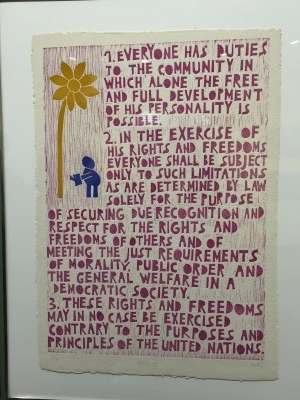 1. EVERYONE HAS DUTIES
TO THE COMMUNITY IN
WHICH ALONE THE FREE
AND FULL DEVELOPMENT
OF HIS PERSONALITY IS
POSSIBLE.
2. IN THE EXERCISE OF
HIS RIGHTS AND FREEDOMS
EVERYONE SHALL BE SUBJECT
ONLY TO SUCH LIMITATIONS
AS ARE DETERMINED BY LAW
SOLELY FOR THE PURPOSE
OF SECURING DUE RECOGNITION AND
RESPECT FOR THE RIGHTS AND
FREEDOMS OF OTHERS AND OF
MEETING THE JUST REQUIREMENTS
OF MORALITY, PUBLIC ORDER AND
THE GENERAL WELFARE IN A
DEMOCRATIC SOCIETY.
3. THESE RIGHTS AND FREEDOMS
MAY IN NO CASE BE EXERCISED
CONTRARY TO THE PURPOSES AND
PRINCIPLES OF THE UNITED NATIONS.